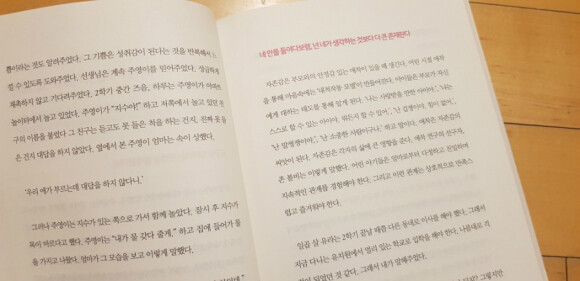 쁨이라는 것도 알려주었다. 그 기쁨은 성취감이 된다는 것을 반복해서 느
낄 수 있도록 도와주었다. 선생님은 계속 주영이를 믿어주었다. 성급하게
재촉하지 않고 기다려주었다. 2학기 중간 즈음, 하루는 주영이가 아파트
놀이터에서 놀고 있었다. 주영이가 "지수야!" 하고 저쪽에서 놀고 있던 친
구의 이름을 불렀다. 그 친구는 듣고도 못 들은 척을 하는 건지, 진짜 못 들
은 건지 대답을 하지 않았다. 옆에서 본 주영이 엄마는 속이 상했다.
'우리 애가 부르는데 대답을 하지 않다니.'
그러나 주영이는 지수가 있는 쪽으로 가서 함께 놀았다. 잠시 후 지수가
목이 마르다고 했다. 주영이는 "내가 물 갖다 줄게." 하고 집에 들어가 물
을 가지고 나왔다. 엄마가 그 모습을 보고 이렇게 말했다.
네 안을 들여다보렴, 넌 네가 생각하는 것보다 더 큰 존재란다
자존감은 부모와의 안정감 있는 애착이 있을 때 생긴다. 어린 시절 애착
을 통해 마음속에 '내적작동 모델'이 만들어진다. 아이들은 부모가 자신
에게 대하는 태도를 통해 알게 된다. '나는 사랑받을 만한 아이야.', '나는
스스로 할 수 있는 아이야. 뭐든지 할 수 있어.', '난 집중력이 있어.',
'난 소중한 사람이구나.' 하고 말이다. 애착은 자존감의
씨앗이 된다. 자존감은 각자의 삶에 큰 영향을 준다. 애착 연구의 선구자,
존 볼비는 이렇게 말했다. 어린 아기들은 엄마로부터 다정하고 친밀하며
지속적인 관계를 경험해야 한다. 그리고 이런 관계는 상호적으로 만족스
럽고 즐거워야 한다.
일곱 살 유라는 2학기 끝날 때쯤 다른 동네로 이사를 해야 했다. 그래서
지금 다니는 유치원에서 멀리 있는 학교로 입학을 해야 한다. 나름대로 걱
정이 되었던 것 같다. 그래서 내가 말해주었다.